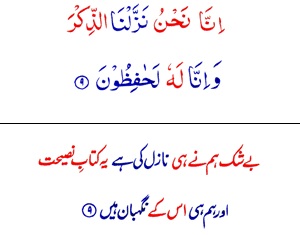 اِنَّا نَحْنُ نَزَّلْنَا الذِّكْرَ
وَاِنَّا لَهٗ لَحٰفِظُوْنَ ﴿۹﴾
بے شک ہم نے ہی نازل کی ہے یہ کتابِ نصیحت
اور ہم ہی اس کے نگہبان ہیں ﴿۹﴾